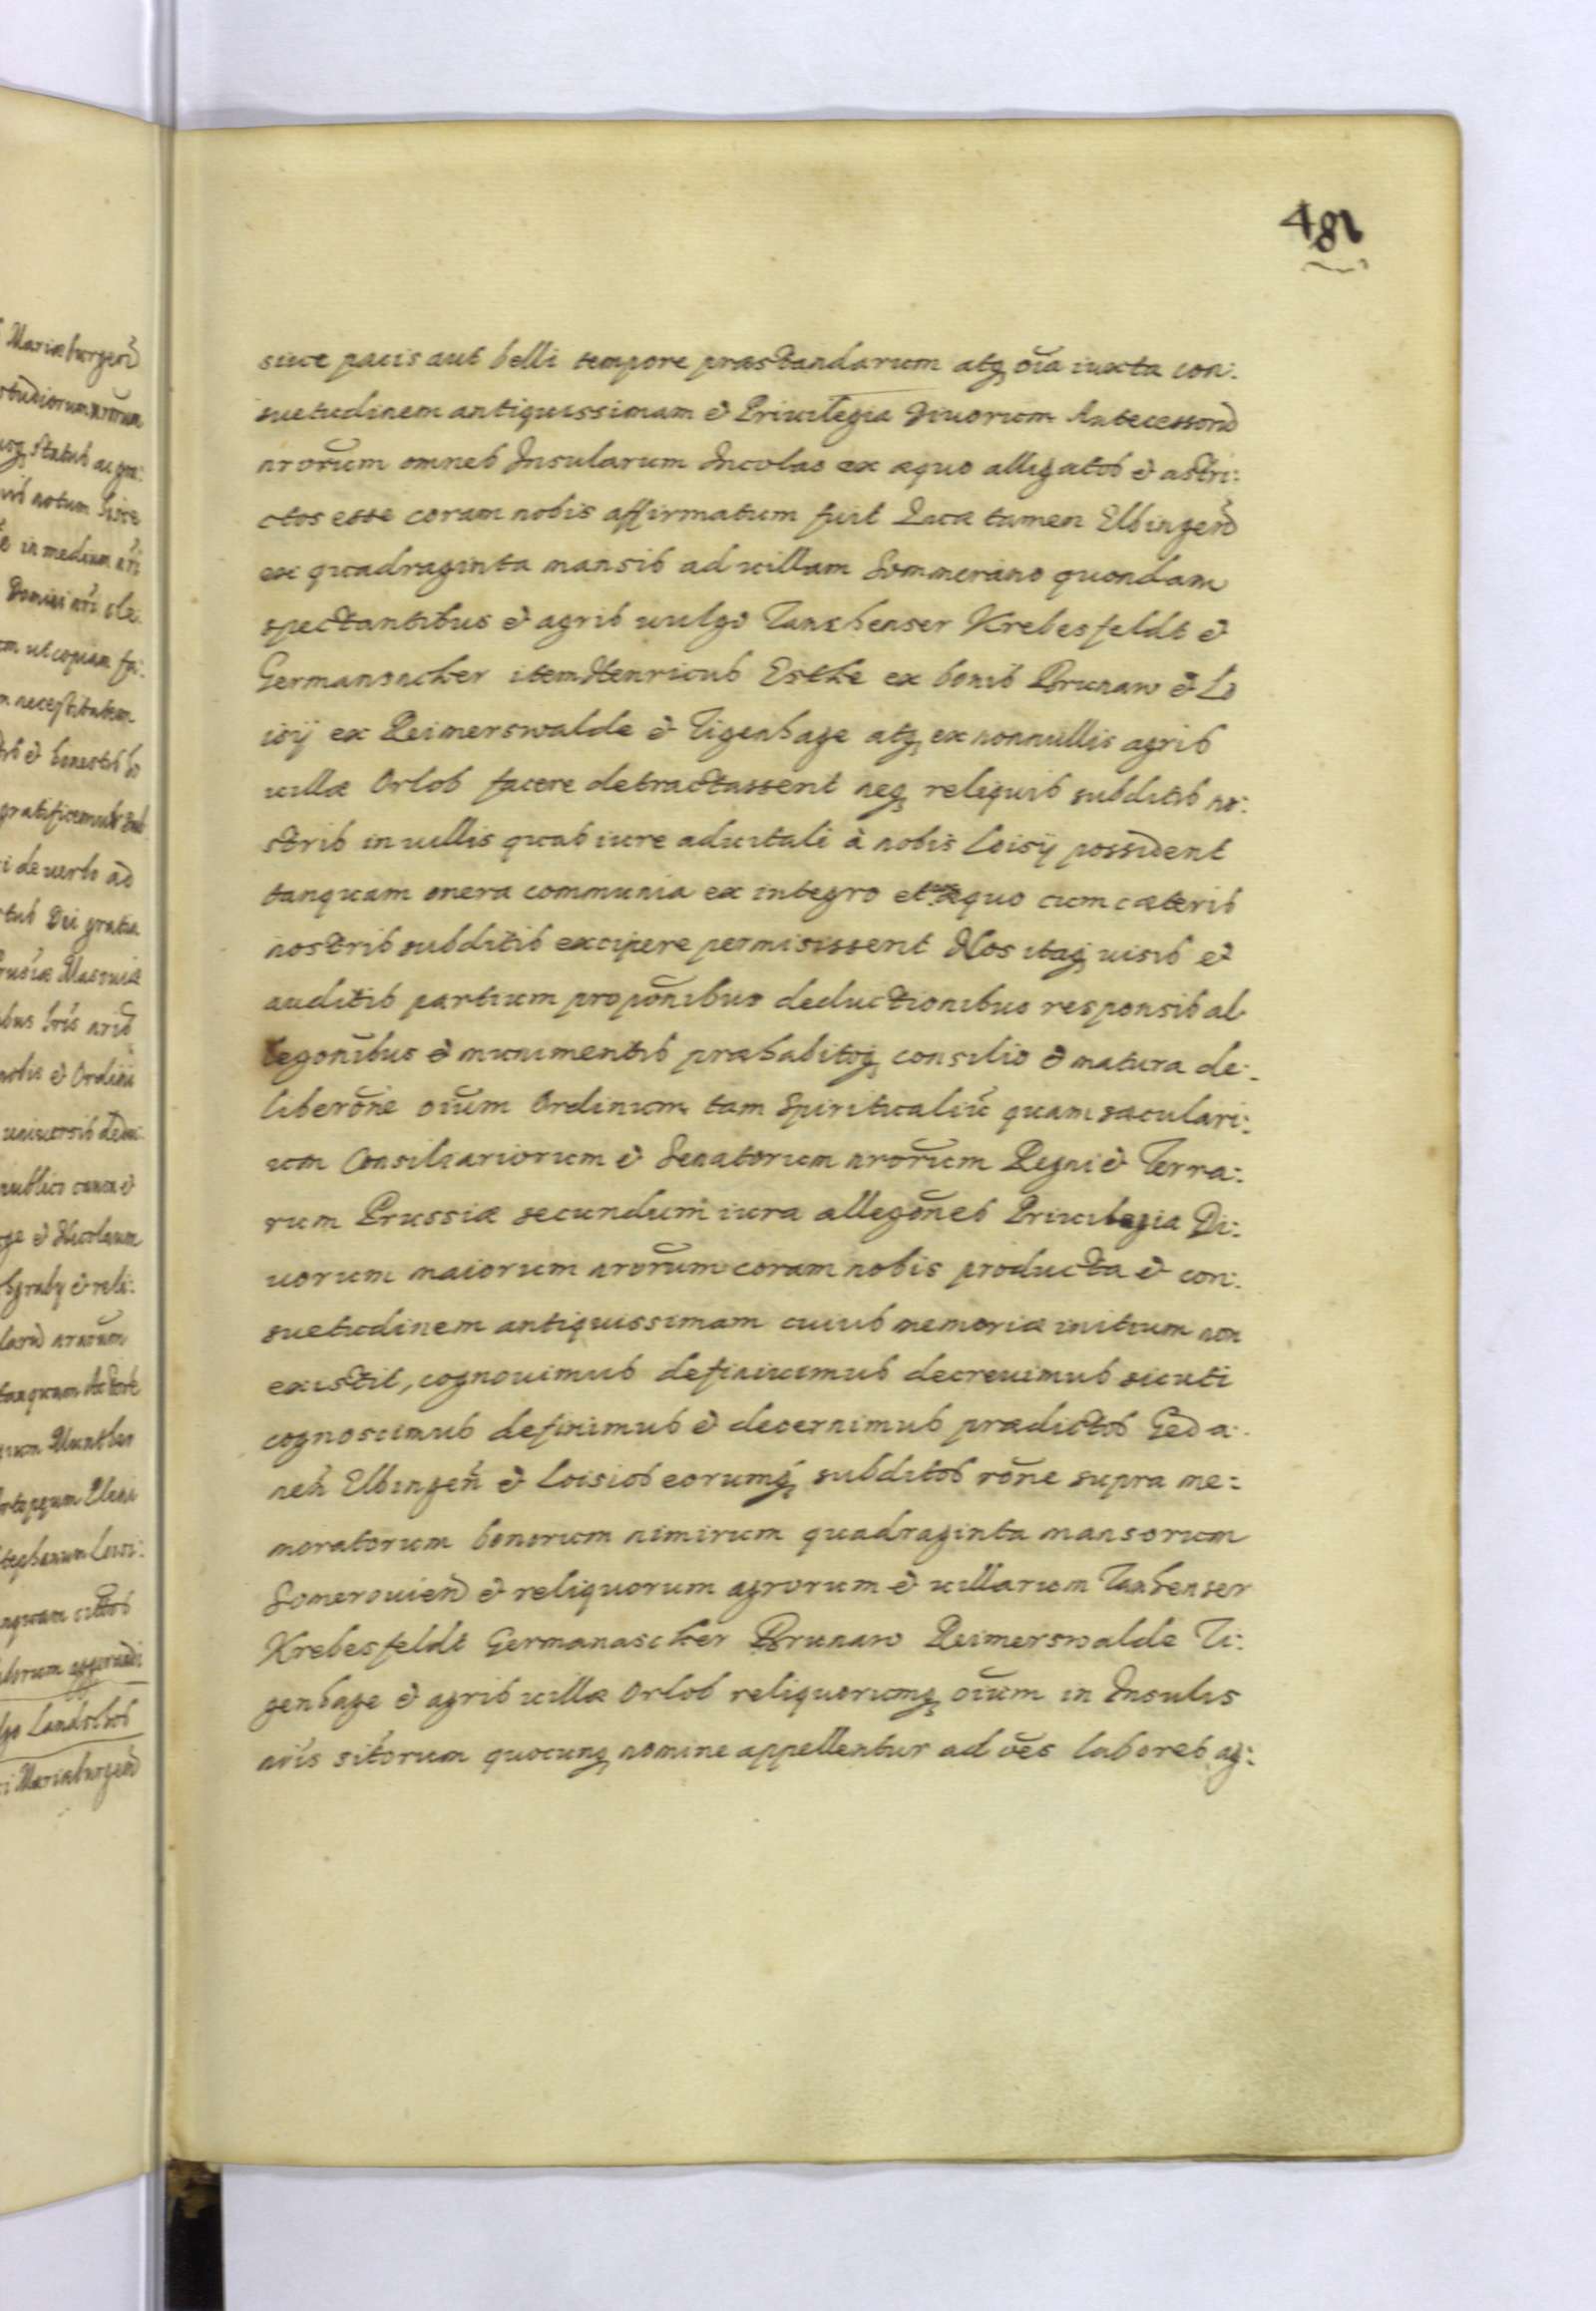 481
siue pacis aut belli tempore præstandarum atq₃ oīa iuxta con:
suetudinem antiquissimam et Priuilegia Diuorum Antecessorū
nrorum omnes Insularum Incolas ex æquo alligatos et astri:
ctos esse coram nobis affirmatum fuit Quæ tamen Elbingeñ
ex quadraginta mansis ad uillam Sommerano quondam
spectantibus et agris uulgo Krebesfeldt et
item Henricus Esthe ex bonis Brunaw et Lo
isij ex Reimerswalde et Tigenhage atq₃ ex nonnullis agris
uillæ Orlob facere detractassent neq₃ reliquis subditis no:
stris in uillis quas iure aduitali à nobis Loisij possident
tanquam onera communia ex integro et æquo cum cæteris
nostris subditis excipere permisissent Nos itaq₃ uisis et
auditis partium propōnibus deductionibus responsis al
legōnibus et munimentis præhabitoq₃ consilio et matura de:
liberōne oīum Ordinum tam Spiritualiū quam sæculari:
um Consiliariorum et Senatorum nrorum Regni et Terra:
rum Prussiæ secundum iura allegōnes Priuilegia Di:
uorum maiorum nrorum coram nobis producta et con:
suetudinem antiquissimam cuius memoriæ initium non
existit, cognouimus definiuimus decreuimus sicuti
cognoscimus definimus et decernimus prædictos Geda:
neñ Elbingeñ et Loisios eorumq₃ subditos rōne supra me:
moratorum bonorum nimirum quadraginta mansorum
Somerouieñ et reliquorum agrorum et uillarum Tanhenser
Krebesfeldt Germanascker Brunaw Reimerswalde Ti:
genhage et agris uillæ Orlob reliquorumq₃ oīum in Insulis
nr̄is sitorum quocunq₃ nomine appellentur ad oēs labores ag: